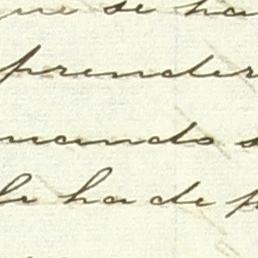 que se ha
prender
uando s
le ha de p